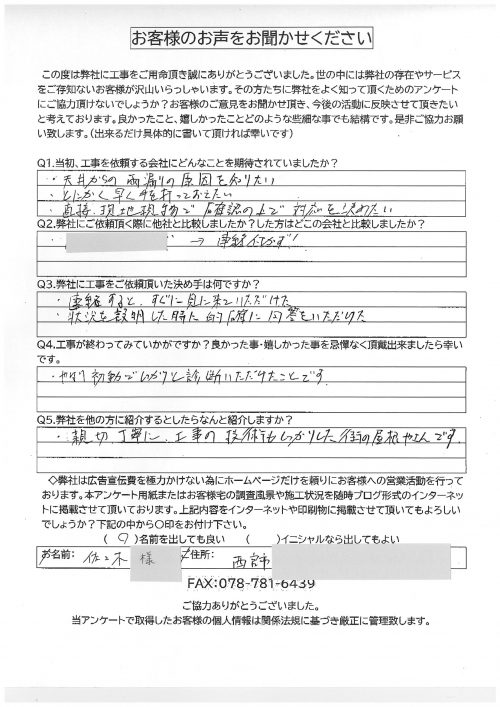 お客様のお声をお聞かせください
この度は弊社に工事をご用命頂き誠にありがとうございました。世の中には弊社の存在やサービス
をご存知ないお客様が沢山いらっしゃいます。その方たちに弊社をよく知って頂くためのアンケート
にご協力頂けないでしょうか？お客様のご意見をお聞かせ頂き、今後の活動に反映させて頂きたい
と考えております。良かったこと、嬉しかったことどのような些細な事でも結構です。是非ご協力お願
い致します。（出来るだけ具体的に書いて頂ければ幸いです）
Q1.当初、工事を依頼する会社にどんなことを期待されていましたか？
・天井からの雨漏りの原因を知りたい
・とにかく早く手を打っておきたい
・直接、現地現物で確認の上で対応を決めたい
Q2.弊社にご依頼頂く際に他社と比較しましたか？した方はどこの会社と比較しましたか？
・ → 連絡付かず！
Q3.弊社に工事をご依頼頂いた決め手は何ですか？
・連絡すると、すぐに見に来ていただけた
・状況を説明した時に的確に回答をいただけた
Q4.工事が終わってみていかがですか？良かった事・嬉しかった事を忌憚なく頂戴出来ましたら幸い
です。
・やはり初動でしっかりと診断いただけたことです
Q5.弊社を他の方に紹介するとしたらなんと紹介しますか？
・親切、丁寧に、工事の技術もしっかりした街の屋根やさんです。
◇弊社は広告宣伝費を極力かけない為にホームページだけを頼りにお客様への営業活動を行って
おります。本アンケート用紙またはお客様宅の調査風景や施工状況を随時ブログ形式のインターネッ
トに掲載させて頂いております。上記内容をインターネットや印刷物に掲載させて頂いてもよろしい
でしょうか？下記の中から〇印をお付け下さい。
（ ○ ）名前を出しても良い （ ）イニシャルなら出してもよい
お名前： 佐々木 様 ご住所：
FAX：078-781-6439
ご協力ありがとうございました。
当アンケートで取得したお客様の個人情報は関係法規に基づき厳正に管理致します。